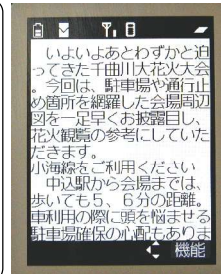 いよいよあとわずかと迫
ってきた千曲川大花火大会
。今回は、駐車場や通行止
め箇所を網羅した会場周辺
図を一足早くお披露目し、
花火観覧の参考にしていた
だきます。
小海線をご利用ください
中込駅から会場までは、
歩いても5、6分の距離。
車利用の際に頭を悩ませる
駐車場確保の心配もありま
機能